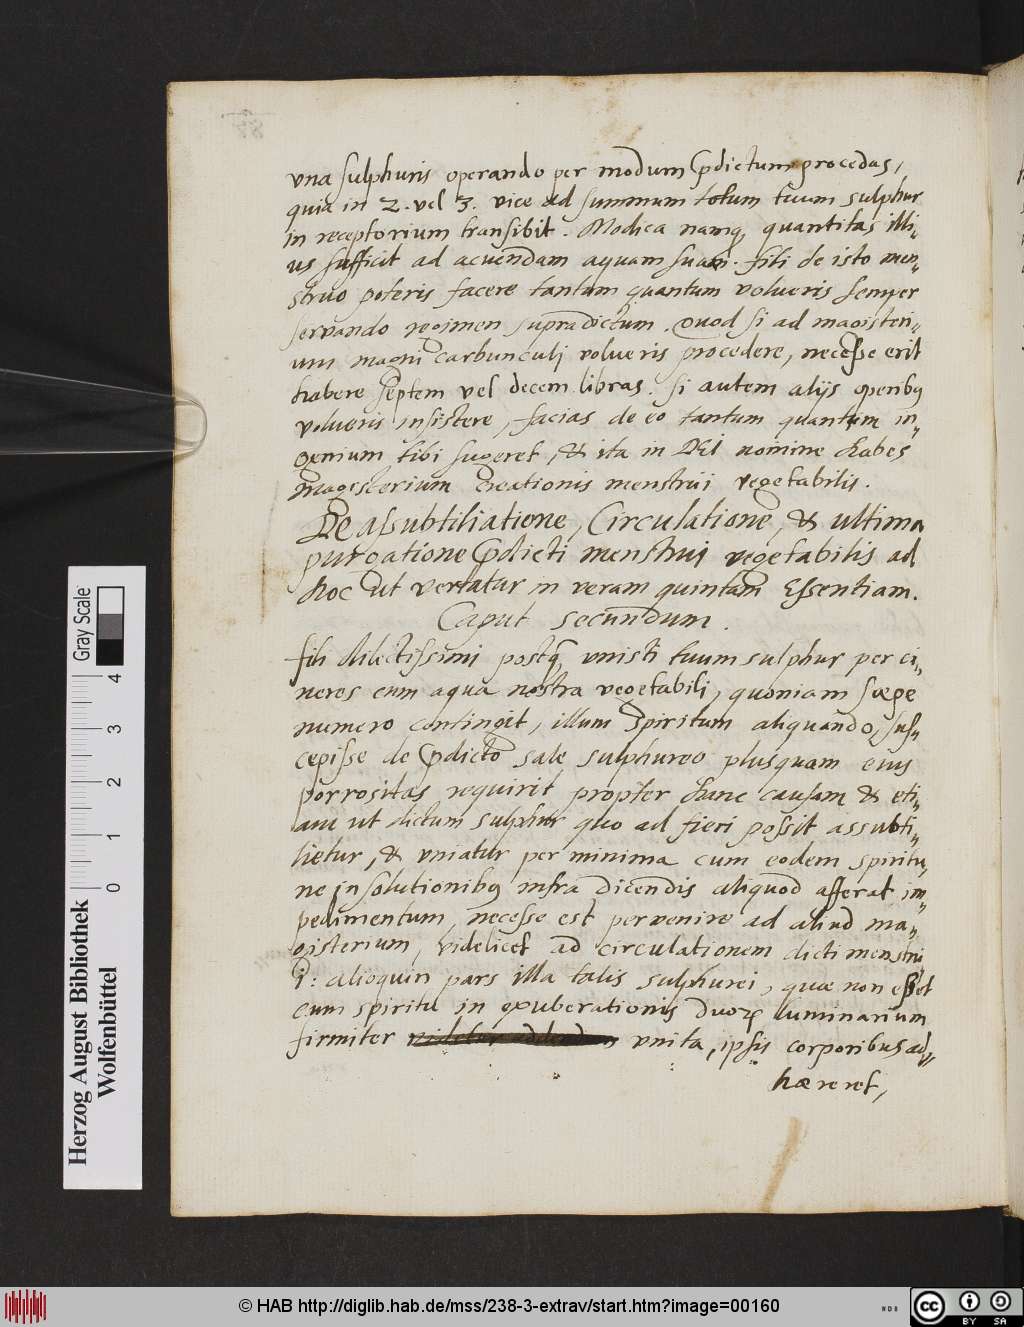 una sulphuris operando per modum p̄dictum procedas,
quia in 2. vel 3. vice ad summum totum tuum sulphur
in receptorium transibit. Modica namq; quantitas illi-
us sufficit ad acuendam aquam suam. fili de isto men-
struo poteris facere tantum quantum volueris semper
servando regimen supradictum. Quod si ad magisteri-
um magni carbunculj volueris procedere, necesse erit
habere septem vel decem libras. Si autem alijs operibq
volueris insistere, facias de eo tantum quantum in-
genium tibi sugeret, & ita in DEI nomine habes
magisterium creationis menstrui vegetabilis.
De assubtiliatione, Circulatione, & ultima
purgatione p̄dicti menstruj vegetabilis ad
hoc ut vertatur in veram quintam Essentiam.
Caput secundum.
fili dilectissimi postq̄ unisti tuum sulphur per ci-
neres cum aqua nostra vegetabili, quoniam sæpe
numero contingit, illum Spiritum aliquando sus-
cepisse de p̄dicto sale sulphureo plusquam eius
porrositas requirit propter hanc causam & eti-
am ut dictum sulphur quo ad fieri possit assubti-
lietur, & uniatur per minima cum eodem spiritu,
ne in solutionibq infra dicendis aliquod afferat im-
pedimentum, necesse est pervenire ad aliud ma-
gisterium, videlicet ad circulationem dicti menstru
i: alioquin pars illa talis sulphurei, quæ non esset
cum spiritu in exuberationis duoꝝ luminarium
firmiter unita, ipsis corporibus ad-
hæreret,
87
Gray Scale
0 1 2 3 4
Herzog August Bibliothek
Wolfenbüttel
© HAB http://diglib.hab.de/mss/238-3-extrav/start.htm?image=00160
cc BY SA